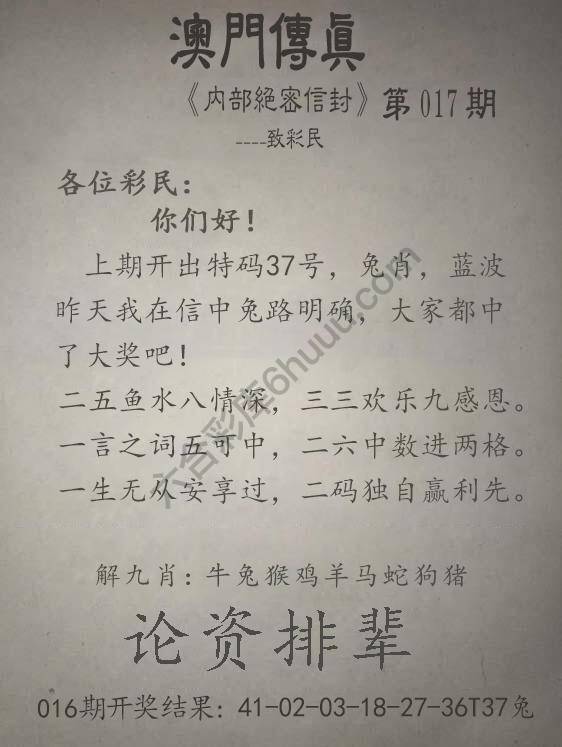 澳門傳眞
《内部絕密信封》第017期
----致彩民
各位彩民：
你们好！
上期开出特码37号，兔肖，蓝波
昨天我在信中兔路明确，大家都中
了大奖吧！
二五鱼水八情深，三三欢乐九感恩。
一言之词五可中，二六中数进两格。
一生无从安享过，二码独自赢利先。
解九肖：牛兔猴鸡羊马蛇狗猪
论资排辈
016期开奖结果：41-02-03-18-27-36T37兔
六合彩库6huuu.com